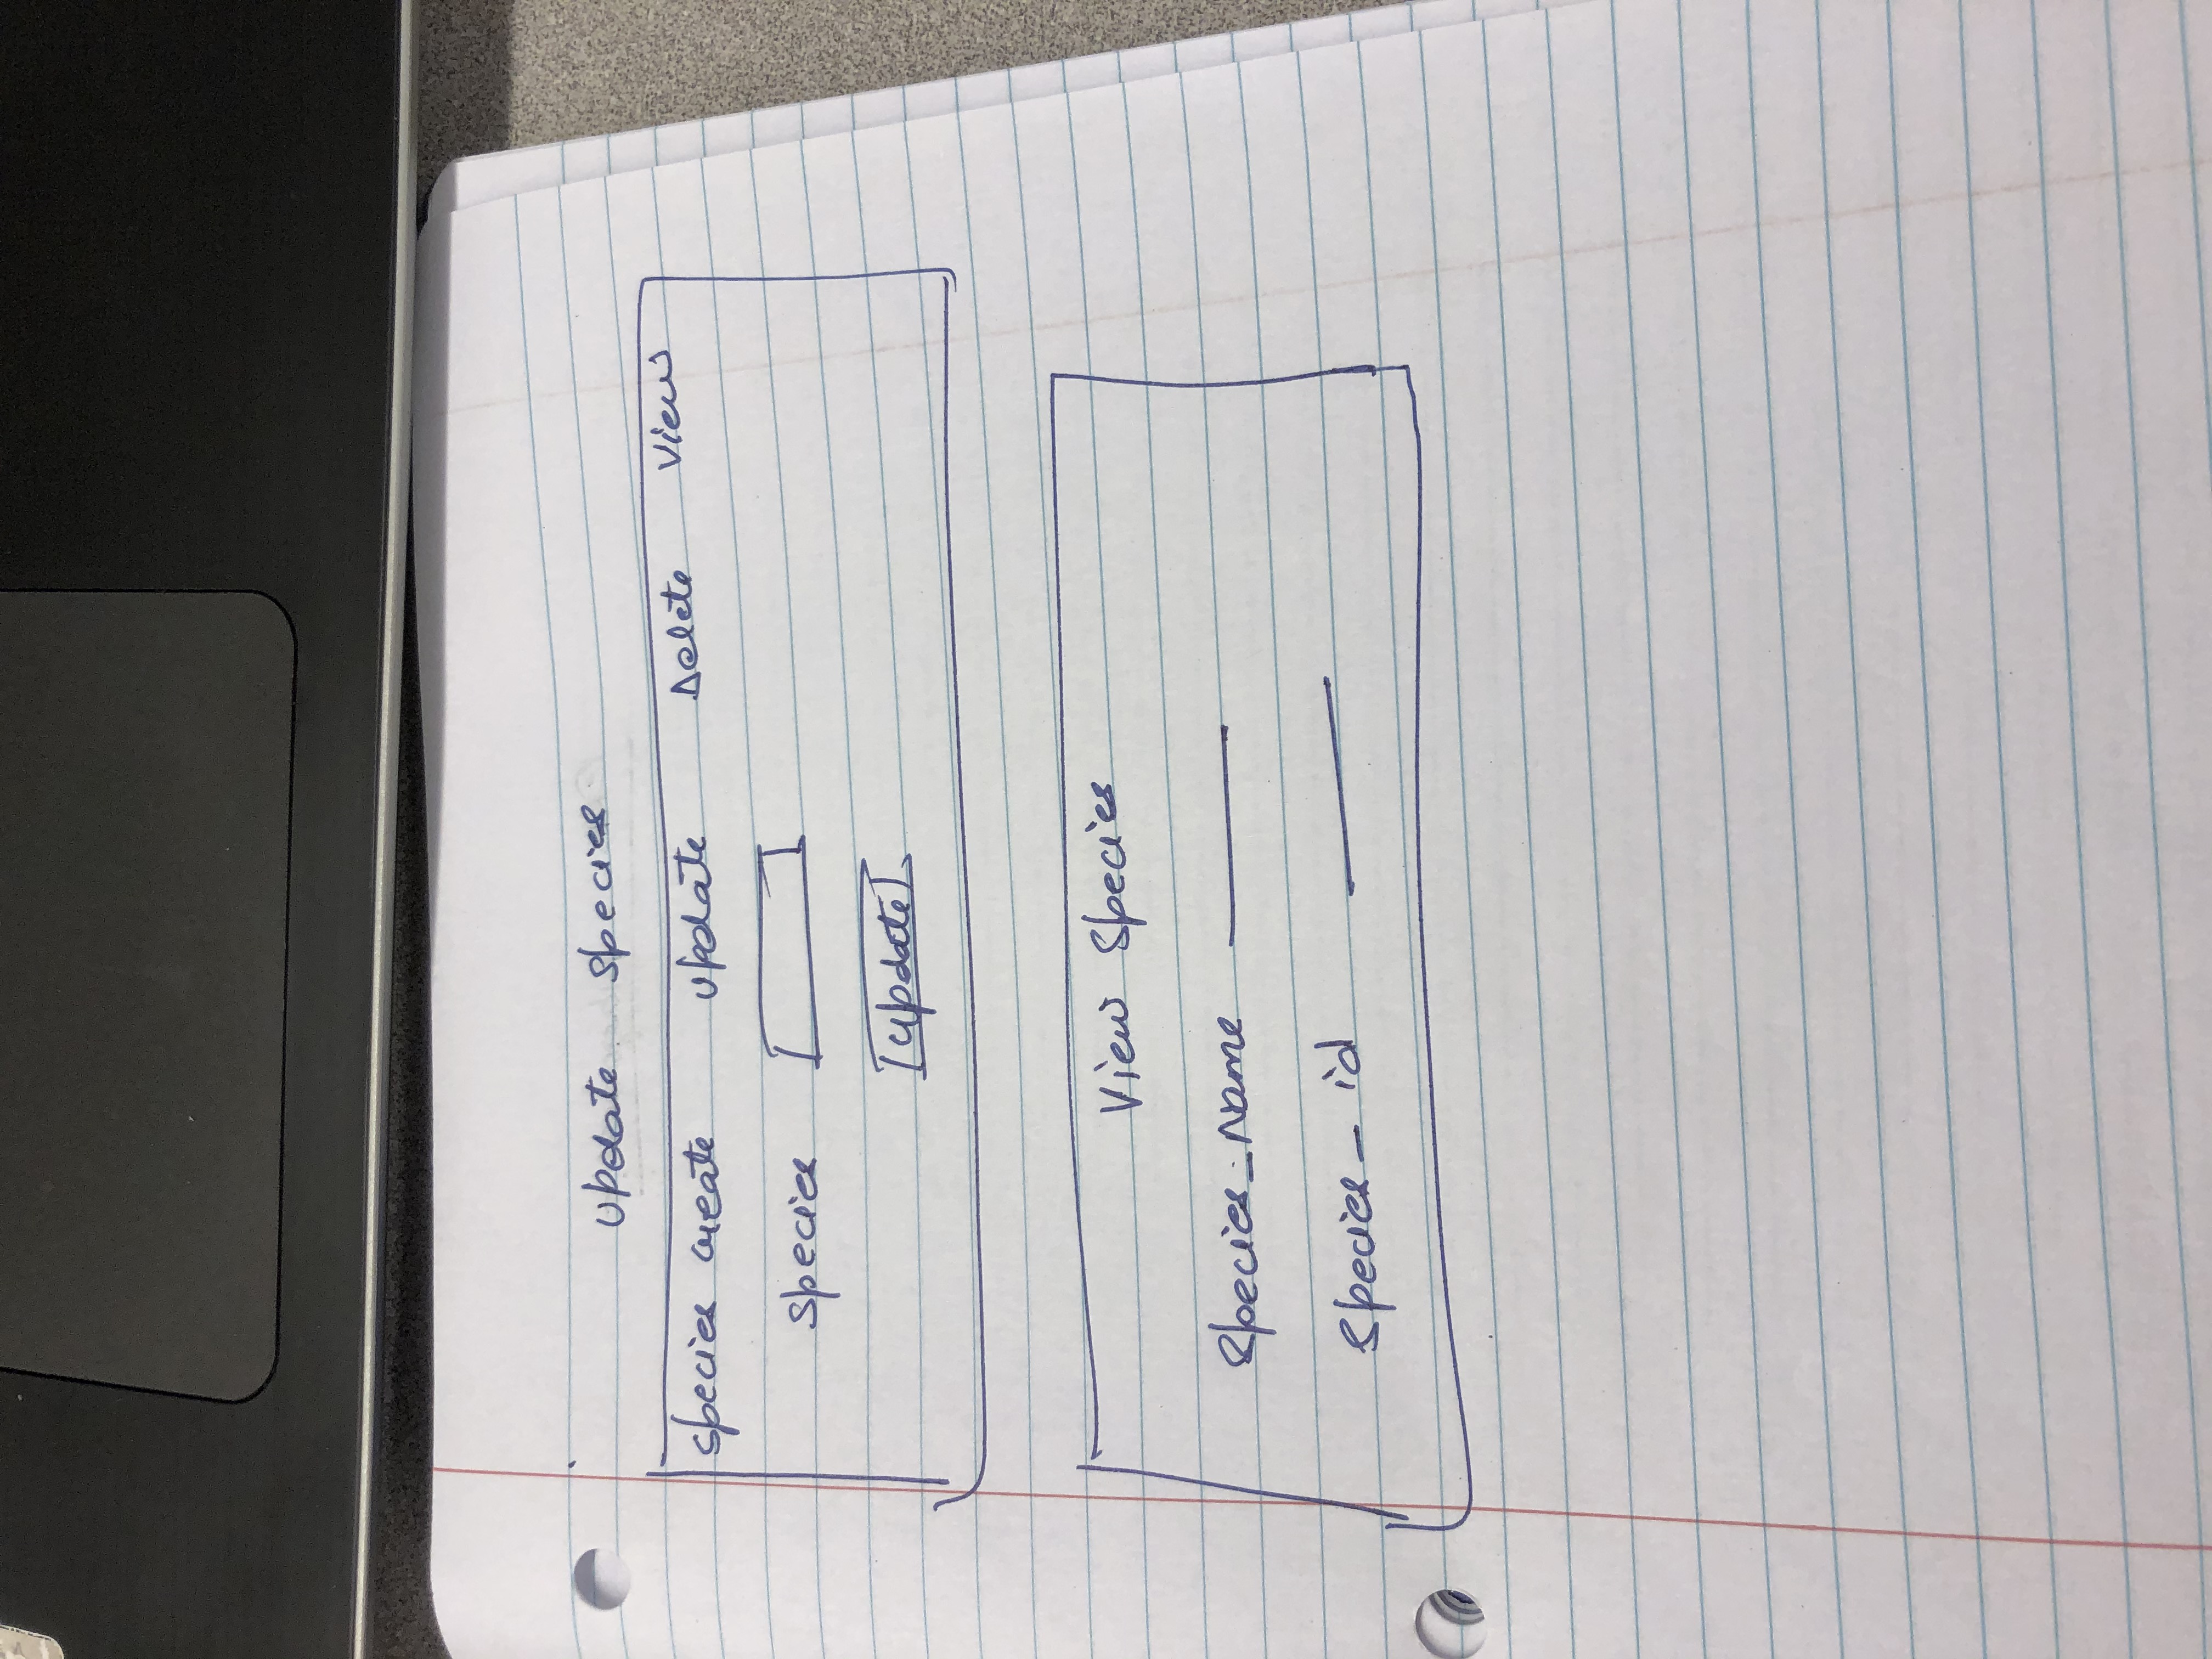 update species
species create update Delete View
species
update
View Species
Species_Name
Species_id